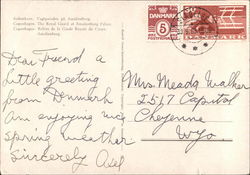 København. Vagtparaden på Amalienborg.
Copenhagen. The Royal Guard at Amalienborg Palace.
Copenhague. Relève de la Garde Royale du Cours
Amalienborg.
Dear Friend a
little greeting
from Denmark
Am enjoying nice
spring weather
Sincerely Axel
DANMARK
5
30
DANMARK
Mrs. Meade Walker
2517 Capitol
Cheyenne
Wyo.